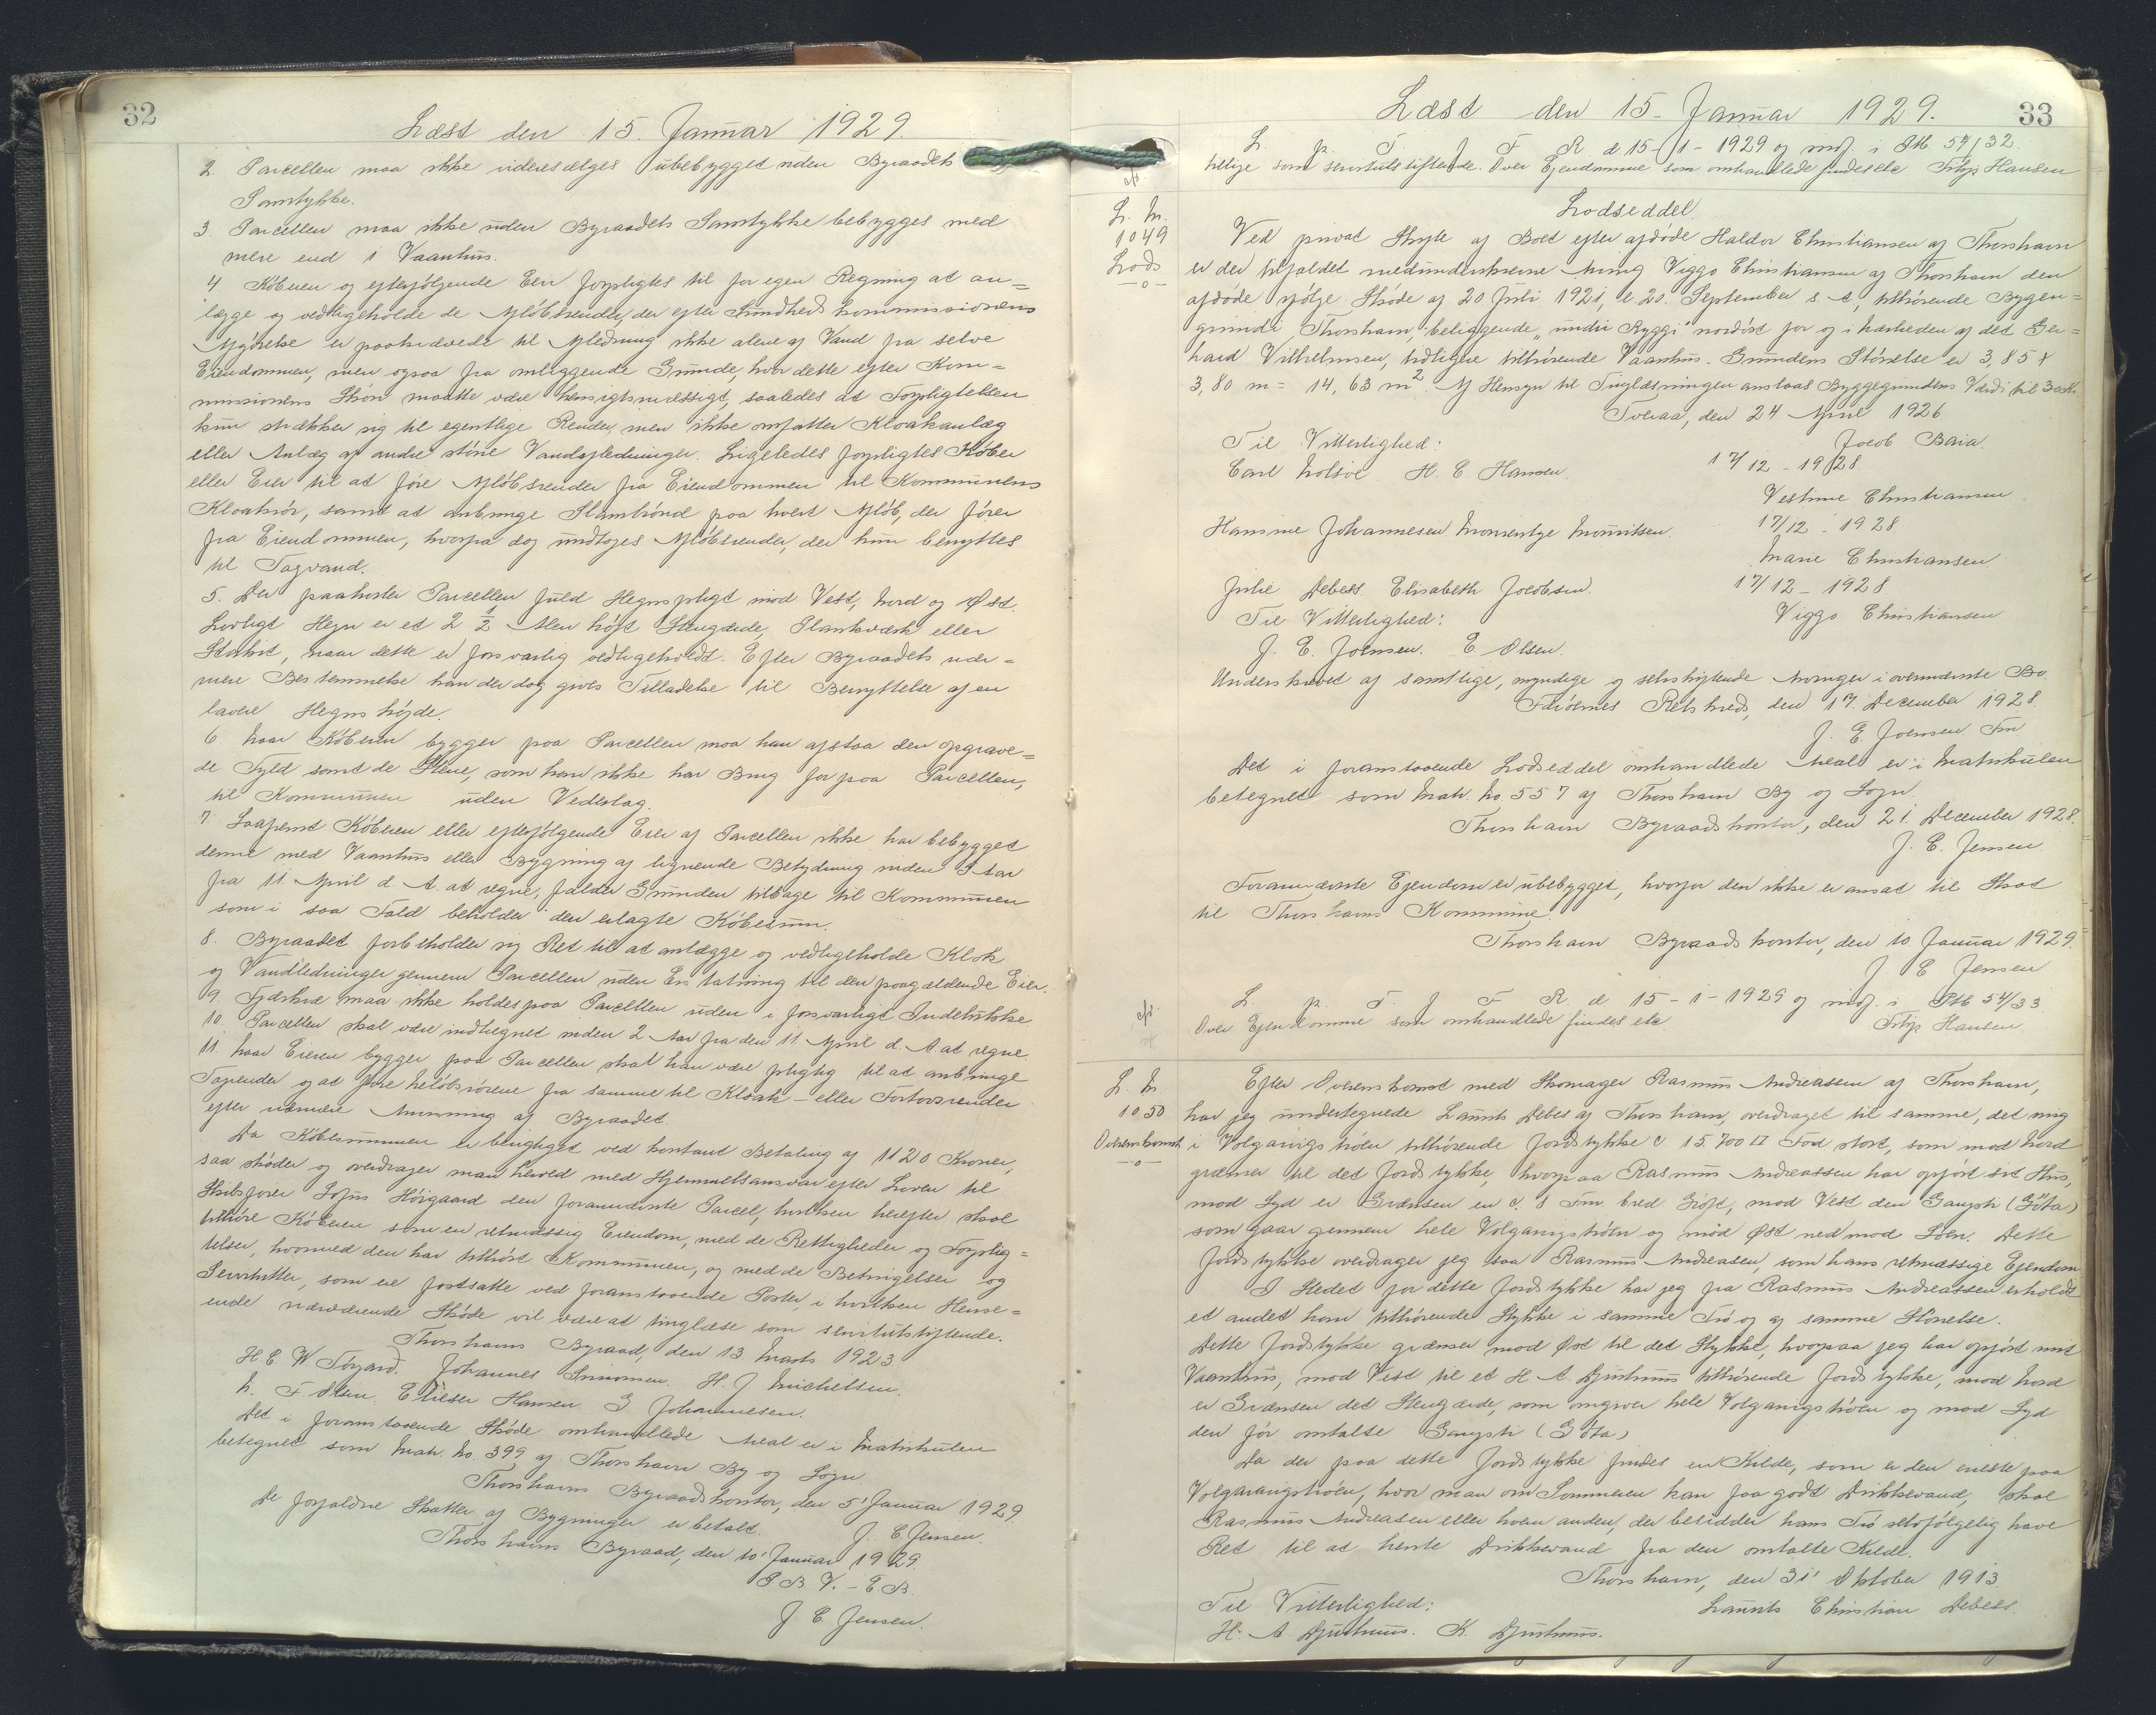 32
Læst den 15. Januar 1929.
2. Parcellen maa ikke videresælges ubebygget uden Byraadets
Samtykke.
3. Parcellen maa ikke uden Byraadets Samtykke bebygges med
mere end 1 Vaanhus.
4 Køberen og efterfølgende Eier forpligtes til for egen Regning at an=
lægge og vedligeholde de Afløbsrender, der efter Sundhedskommissionens
Afgørelse er paakrævede til Afledning ikke alene af Vand fra selve
Eiendommen, men ogsaa fra omliggende Grunde, hvor dette efter Kom=
missionens Skøn maatte være hensigtsmæssigt, saaledes at Forpligtelsen
kun strækker sig til egentlige Render, men ikke omfatter Kloakanlæg
eller Anlæg af andre større Vandafledninger. Ligeledes forpligtes Køber
eller Eier til at føre Afløbsrender fra Eiendommen til Kommunens
Kloakrør, samt at anbringe Slambrønd paa hvert Afløb, der fører
fra Eiendommen, hvorfra dog undtages Afløbsrender, der kun benyttes
til Tagvand.
5. Der paahviler Parcellen fuld Hegnspligt mod Vest, Nord og Øst.
Lovligt Hegn er et 2 1/2 Alen højt Stengærde, Plankeværk eller
Stakit, naar dette er forsvarlig vedligeholdt. Efter Byraadets nær=
mere Bestemmelse kan der dog gives Tilladelse til Benyttelse af en
lavere Hegnshøjde.
6 Naar Køberen bygger paa Parcellen maa han afstaa den opgrave=
de Fyld samt de Stene, som han ikke har Brug for paa Parcellen,
til Kommunen uden Vederlag.
7. Saafremt Køberen eller efterfølgende Eier af Parcellen ikke har bebygget
denne med Vaanhus eller Bygning af lignende Betydning inden 3 Aar
fra 11. April d. A. at regne, falder Grunden tilbage til Kommunen
som i saa Fald beholder den erlagte Købesum.
8. Byraadet forbeholder sig Ret til at anlægge og vedligeholde Kloak
og Vandledninger gennem Parcellen uden Erstatning til den paagældende Eier.
9. Fjerkræ maa ikke holdes paa Parcellen uden i forsvarligt Indelukke
10. Parcellen skal være indhegnet inden 2 Aar fra den 11. April d. A. at regne.
11. Naar Eieren bygger paa Parcellen skal han være pligtig til at anbringe
Tagrender og at føre Nedløbsrørene fra samme til Kloak- eller Fortovsrender
efter nærmere Anvisning af Byraadet.
Da Købesummen er berigtiget ved kontant Betaling af 1120 Kroner,
saa skøder og overdrager man herved med Hjemmelsansvar efter Loven til
Skibsfører Sofus Højgaard den forannævnte Parcel, hvilken herefter skal
tilhøre Køberen som en retmæssig Eiendom, med de Rettigheder og Forplig=
telser, hvormed den har tilhørt Kommunen, og med de Betingelser og
Servitutter, som ere fastsatte ved foranstaaende Poster, i hvilken Hense=
ende nærværende Skøde vil være at tinglæse som servitutstiftende.
Thorshavns Byraad, den 13. Marts 1923
H E W Tórgarð. Johannes Simonsen. H. J. Michelsen.
N. F. Olsen. Elieser Hansen. G Johannesen.
Det i foranstaaende Skøde omhandlede Areal er i Matrikulen
betegnet som Matr. No. 399 af Thorshavn By og Sogn
Thorshavns Byraadskontor, den 5' Januar 1929.
J. E. Jensen.
De forfaldne Skatter af Bygninger er betalt.
Thorshavns Byraad, den 10' Januar 1929.
P. B. V. - E. B.
J E. Jensen.
33
Læst den 15. Januar 1929.
L. p. T. f F R d 15-1-1929 og indf. i Ptb 54/32
tillige som servitutstiftende. Over Ejendomme som omhandlede findes etc Filip Hansen
L. N.
1049
Lods
-o-
Lodseddel.
Ved privat Skifte af Boet efter afdøde Haldor Christiansen af Thorshavn
er der tilfaldet medunderskrevne Arving Viggo Christiansen af Thorshavn den
afdøde ifølge Skøde af 20 Juli 1921, l. 20. September s. A, tilhørende Bygge=
grund i Thorshavn, beliggende "undir Ryggi" nordøst for og i Nærheden af det Ger=
hard Vilhelmsen, tidligere tilhørende Vaanhus. Grundens Størrelse er 3,85 x
3,80 m = 14,63 m2. Af Hensyn til Tinglæsningen ansloas Byggegrundens Værdi til 30 Kr
Tveraa, den 24 April 1926
Til Vitterlighed:
Jacob Baia.
Carl Holsøe H. C Hansen.
17/12-1928
Vestine Christiansen
Hansine Johannesen. Mouritsen.
17/12-1928
Marie Christiansen
Julie Debess. Elisabeth Jacobsen.
17/12-1928.
Til Vitterlighed:
Viggo Christiansen
J. E. Joensen. E. Olsen.
Underskrevet af samtlige, myndige og selvskiftende Arvinger i ovennævnte Bo
Færøernes Retskreds, den 17. December 1928.
J. E Joensen Fm
Det i foranstaaende Lodseddel omhandlede Areal er i Matrikulen
betegnet som Matr. No 557 af Thorshavn By og Sogn
Thorshavn Byraadskontor, den 21. December 1928.
J. E. Jensen
Forannævnte Ejendom er ubebygget, hvorfor den ikke er ansat til Skat
til Thorshavns Kommune.
Thorshavn Byraadskontor, den 10 Januar 1929.
J E Jensen
L. p. T. f F. R. d 15-1-1929 og indf. i Ptb 54/33
Over Ejendomme som omhandlede findes etc
Filip Hansen
L. N
1050
Overenskomst
-o-
Efter Overenskomst med Skomager Rasmus Andreassen af Thorshavn,
har jeg undertegnede Laurits Debes af Thorshavn, overdraget til samme, det mig
i Volgarugstrøen tilhørende Jordstykke c. 15.700 □ Fod stort, som mod Nord
grænser til det Jordstykke, hvorpaa Rasmus Andreassen har opført sit Hus,
mod Syd er Grænsen en c. 8 Fm. bred Grøft, mod Vest den Gangsti (Gøta)
som gaar gennem hele Volgarugstrøen og mod Øst ned mod Søen. Dette
Jordstykke overdrager jeg saa Rasmus Andreasen, som hans retmæssige Ejendom
I Stedet for dette Jordstykke har jeg fra Rasmus Andreassen erholdt
et andet ham tilhørende Stykke i samme Trø og af samme Størrelse.
Dette Jordstykke grænser mod Øst til det Stykke, hvorpaa jeg har opført mit
Vaanhus, mod Vest til et H. A. Djurhuus tilhørende Jordstykke, mod Nord
er Grænsen det Stengærde, som omgiver hele Volgarugstrøen og mod Syd
den før omtalte Gangsti (Gøta)
Da der paa dette Jordstykke findes en Kilde, som er den eneste paa
Volgarugstrøen, hvor man om Sommeren kan faa godt Drikkevand, skal
Rasmus Andreasen eller hvem anden, der besidder hans Trø selvfølgelig have
Ret til at hente Drikkevand fra den omtalte Kilde.
Thorshavn, den 31' Oktober 1913.
Til Vitterlighed:
Laurits Christian Debess.
H. A. Djurhuus. K. Djurhuus.